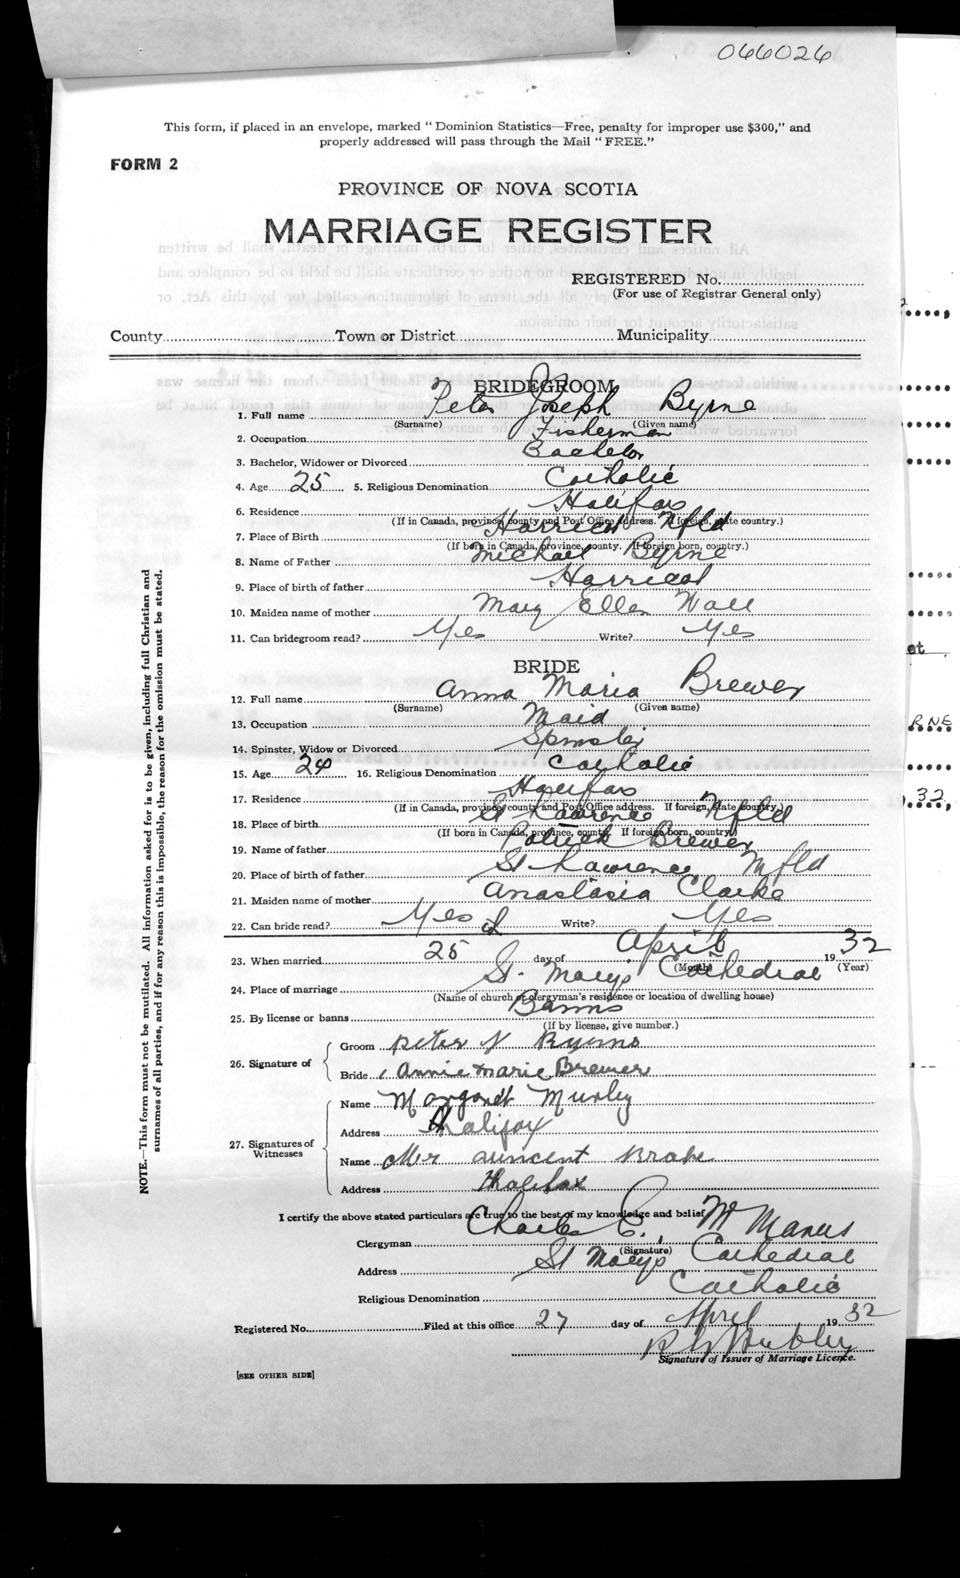 066026
This form, if placed in an envelope, marked "Dominion Statistics—Free, penalty for improper use $300," and
properly addressed will pass through the Mail "FREE."
FORM 2
PROVINCE OF NOVA SCOTIA
MARRIAGE REGISTER
REGISTERED No.
(For use of Registrar General only)
County Town or District Municipality
BRIDEGROOM
1. Full name Peter Joseph Byrne
(Surname) (Given name)
2. Occupation Fisherman
3. Bachelor, Widower or Divorced Bachelor
4. Age 25 5. Religious Denomination Catholic
6. Residence Halifax
(If in Canada, province, county and Post Office address. If foreign, state country.)
7. Place of Birth Harricot Nfld
(If born in Canada, province, county. If foreign born, country.)
8. Name of Father Michael Byrne
9. Place of birth of father Harricot
10. Maiden name of mother Mary Ellen Wall
11. Can bridegroom read? Yes Write? Yes
BRIDE
12. Full name Anna Maria Brewer
(Surname) (Given name)
13. Occupation Maid
14. Spinster, Widow or Divorced Spinster
15. Age 24 16. Religious Denomination Catholic
17. Residence Halifax
(If in Canada, province, county and Post Office address. If foreign, state country.)
18. Place of birth St Lawrence Nfld
(If born in Canada, province, county. If foreign born, country.)
19. Name of father Patrick Brewer
20. Place of birth of father St Lawrence Nfld
21. Maiden name of mother Anastasia Clarke
22. Can bride read? Yes Write? Yes
23. When married 25 day of April 1932
(Month) (Year)
24. Place of marriage St. Marys Cathedral
(Name of church or clergyman's residence or location of dwelling house)
25. By license or banns Banns
(If by license, give number.)
26. Signature of
Groom Peter J
Bride Annie Marie Brewer
27. Signatures of Witnesses
Name Margaret Murley
Address Halifax
Name Mr Vincent Brake
Address Halifax
I certify the above stated particulars are true to the best of my knowledge and belief.
Clergyman Charles E. McManus
(Signature)
Address St Marys Cathedral
Religious Denomination Catholic
Registered No. Filed at this office 27 day of April 1932
Hubley
Signature of Issuer of Marriage Licence.
[SEE OTHER SIDE]
NOTE.—This form must not be mutilated. All information asked for is to be given, including full Christian and
surnames of all parties, and if for any reason this is impossible, the reason for the omission must be stated.
et
RNE
32